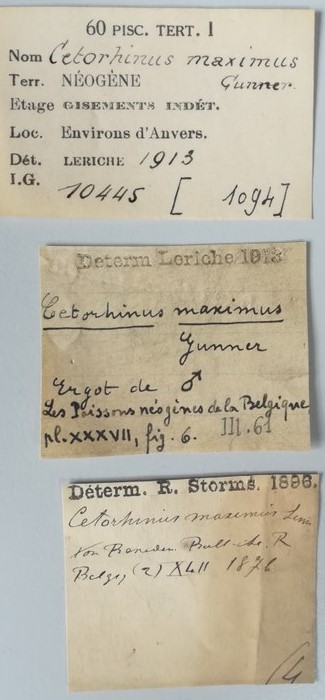 60 PISC. TERT. 1
Nom Cetorhinus maximus
Terr. NÉOGÈNE Gunner.
Etage GISEMENTS INDÉT.
Loc. Environs d'Anvers.
Dét. LERICHE 1913
I.G. 10445 [ 1094]
Determ Leriche 1913
Cetorhinus maximus
Gunner
Ergot de ♂
Les Poissons néogènes de la Belgique
pl. XXXVII, fig. 6. III.61
Déterm. R. Storms. 1896.
Cetorhinus maximus
Van Beneden. Bull. R
Belg, (2) XLII 1876